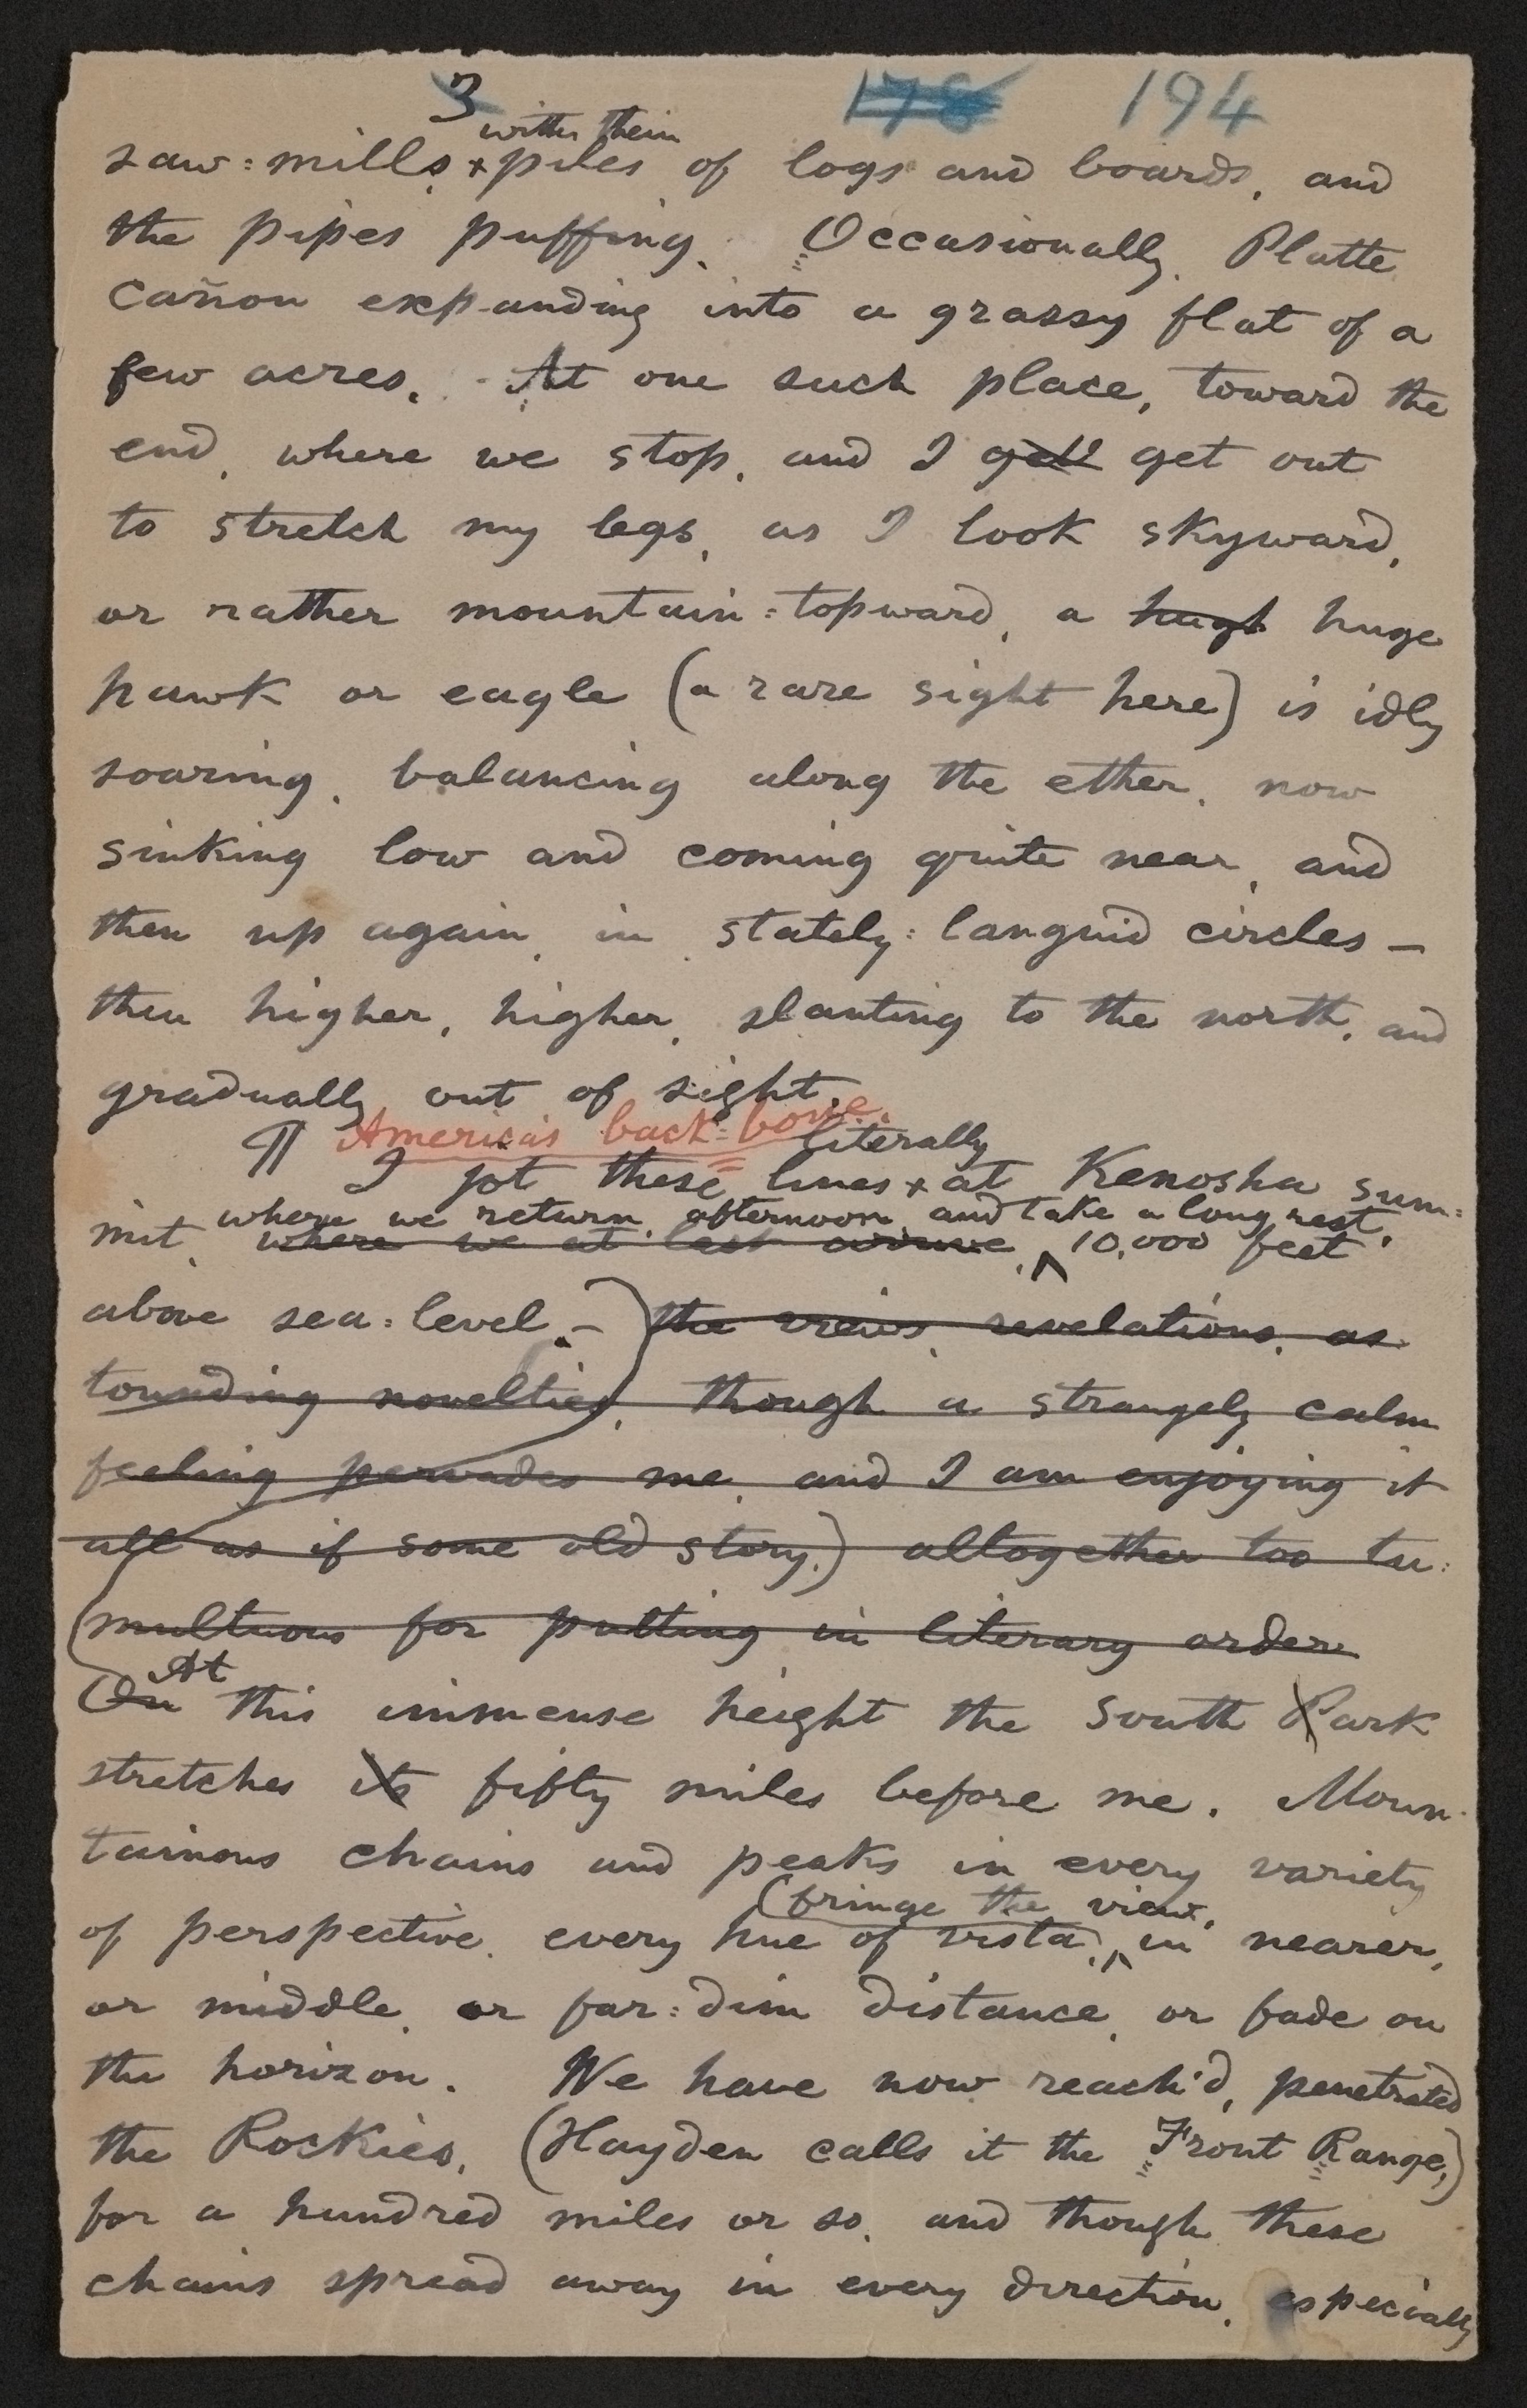 3 178 194
with their
saw=mills, + piles of logs and boards, and
the pipes puffing. Occasionally, Platte
cañon expanding into a grassy flat of a
few acres. At one such place, toward the
end, where we stop, and I get out
to stretch my legs, as I look skyward,
or rather mountain=topward, a hugh huge
hawk or eagle (a rare sight here) is idly
soaring, balancing along the ether, now
sinking low and coming quite near, and
then up again, in stately=languid circles —
then higher, higher, slanting to the north, and
gradually out of sight.
¶ America's back=bone.
literally
I jot these lines + at Kenosha sum=
where we return, afternoon, and take a long rest,
mit, where we at last arrive, ^ 10,000 feet
above sea=level. — the views, revelations, as
tounding novelties, though a strangely calm
feeling pervades me, and I am enjoying it
all as if some old story.) altogether too tu=
multuous for putting in literary order
At
On this immense height the South Park
stretches its fifty miles before me. Moun
tainous chains and peaks in every variety
(fringe the view,
of perspective, every hue of vista, ^ in nearer,
or middle, or far=dim distance, or fade on
the horizon. We have now reach'd, penetrated
the Rockies, (Hayden calls it the Front Range,)
for a hundred miles or so, and though these
chains spread away in every direction, especially